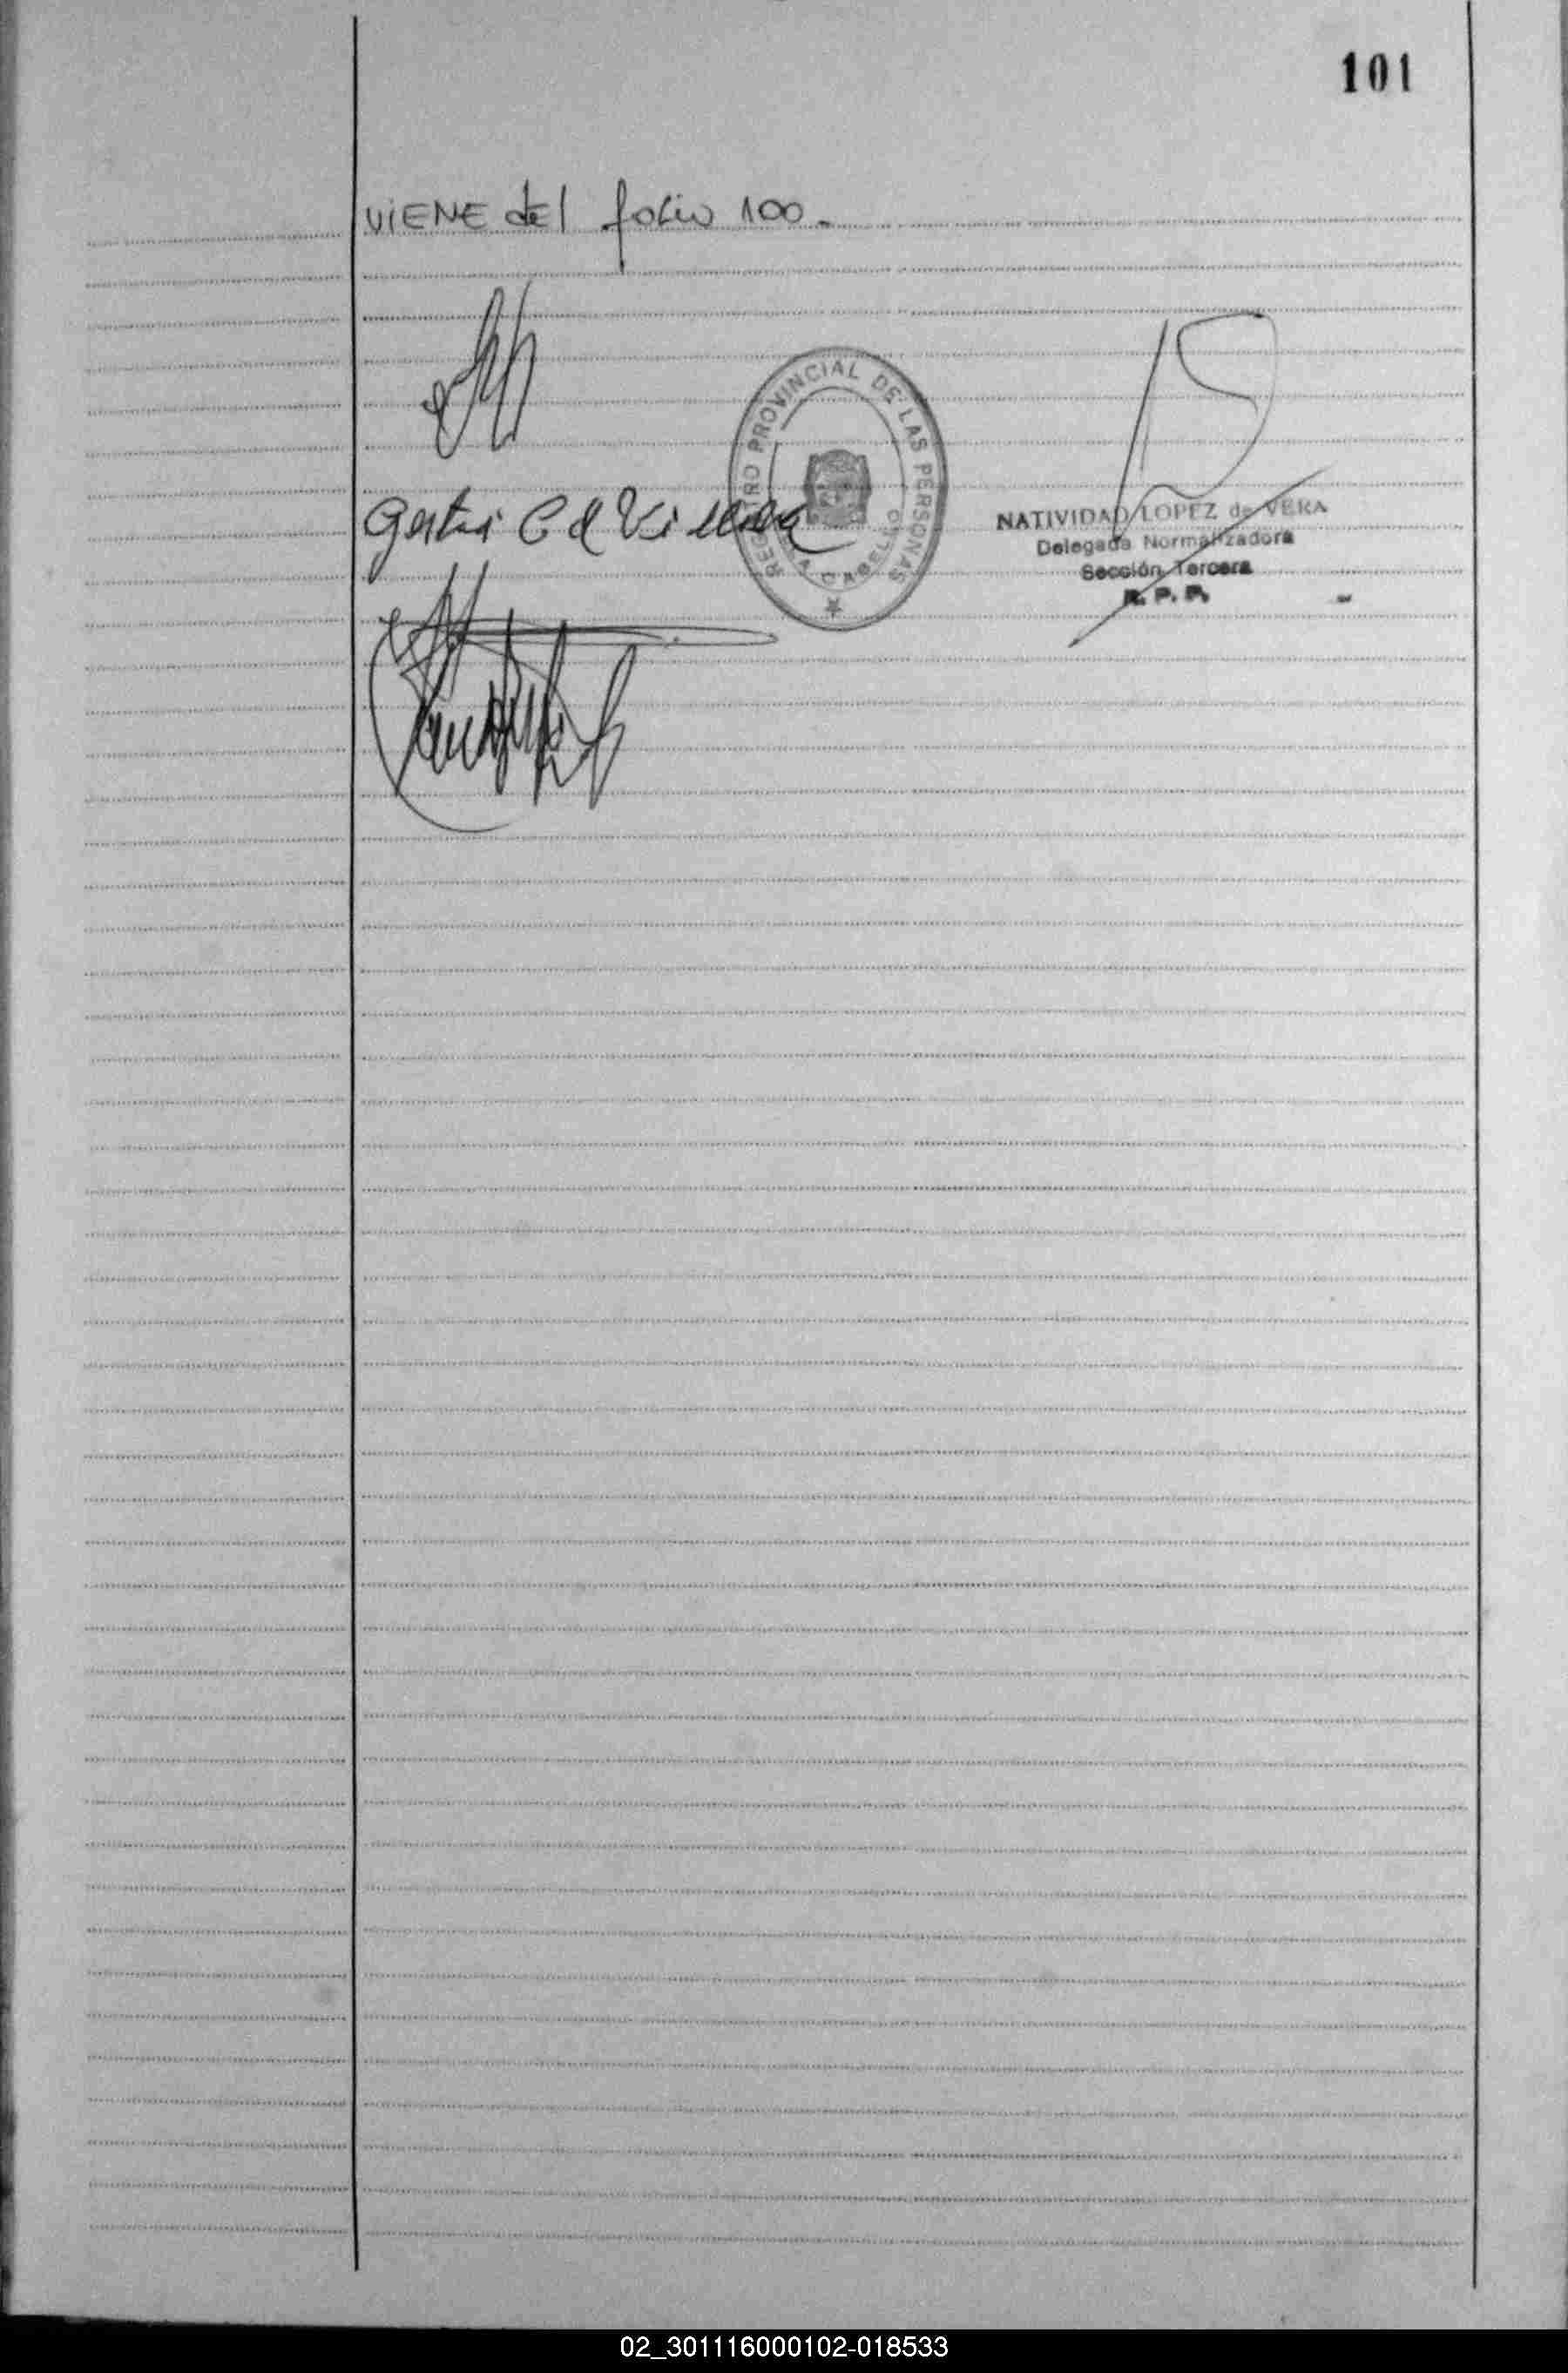 101
ViENE del folio 100.-
REGISTRO PROVINCIAL DE LAS PERSONAS
CABELLO
NATIVIDAD LOPEZ de VERA
Delegada Normalizadora
Sección Tercera
R. P. P.
02_301116000102-018533